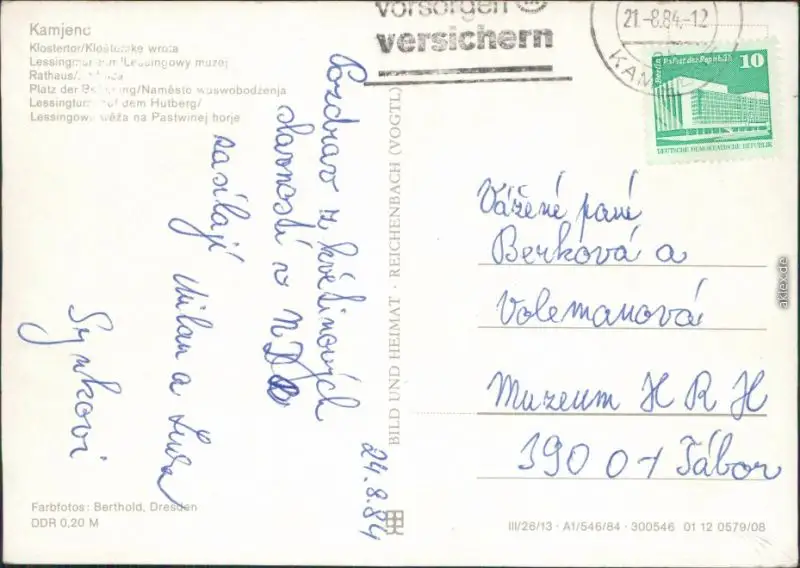 Kamjenc
Klostertor/Klóšterske wrota
Lessingmuseum/Lessingowy muzej
Rathaus/
Platz der Befreiung/Naměsto wuswobodźenja
Lessingturm auf dem Hutberg/
Lessingowa wěža na Pastwinej horje
Pozdrav z květinových
slavností v NDR
zasílají Milan a
Synkovi
24.8.84
Farbfotos: Berthold, Dresden
DDR 0,20 M
BILD UND HEIMAT · REICHENBACH (VOGTL)
vorsorgen
versichern
21.-8.84.-12
KAM
Berlin, Palast der Republik
10
DEUTSCHE DEMOKRATISCHE REPUBLIK
Vážené paní
Berková a
Volemanová
Muzeum H R H
390 01 Tábor
III/26/13 · A1/546/84 · 300546 01 12 0579/08
aklex.de